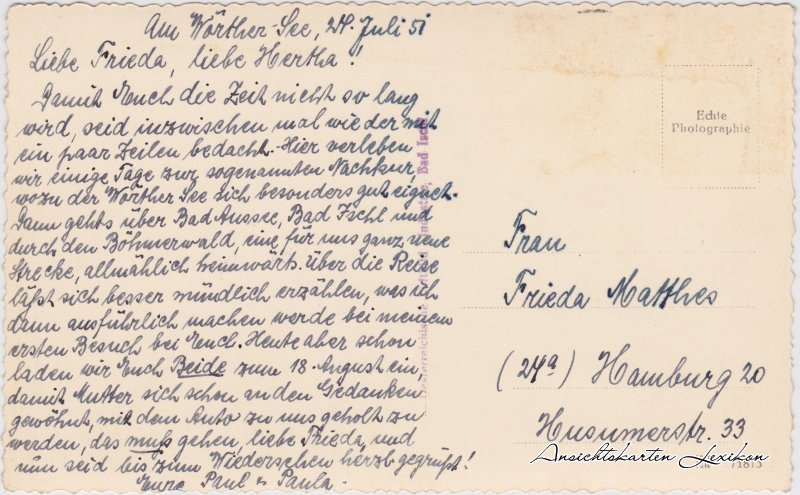 Am Wörther-See, 24. Juli 51
Liebe Frieda, liebe Hertha!
Damit Euch die Zeit nicht so lang
wird, seid inzwischen mal wieder mit
ein paar Zeilen bedacht. Hier verleben
wir einige Tage zur sogenannten Nachkur,
wozu der Wörther See sich besonders gut eignet.
Dann gehts über Bad Aussee, Bad Ischl und
durch den Böhmerwald, eine für uns ganz neue
Strecke, allmählich heimwärts. Über die Reise
läßt sich besser mündlich erzählen, was ich
dann ausführlich machen werde bei meinem
ersten Besuch bei Euch. Heute aber schon
laden wir Euch Beide zum 18. August ein,
damit Mutter sich schon an den Gedanken
gewöhnt, mit dem Auto zu uns geholt zu
werden, das muß gehen, liebe Frieda, und
nun seid bis zum Wiedersehen herzl. gegrüßt!
Eure Paul & Paula.
Bad Ischl
Echte
Photographie
Frau
Frieda Matthes
(24a) Hamburg 20
Husumerstr. 33
Ansichtskarten Lexikon
71875